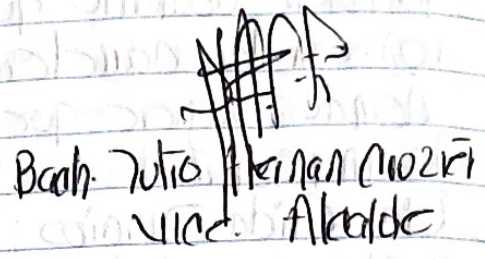 Bach. Julio Hernan
Vice. Alcalde